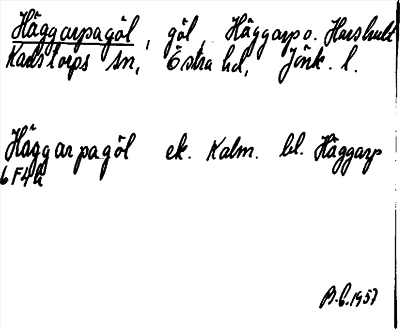 Häggarpagöl, göl Häggarp o. Harshult
Karstorps sn, Östra hd, Jönk. l.
Häggarpagöl ek. Kalm. bl. Häggarp
6F4h
B.6.1957